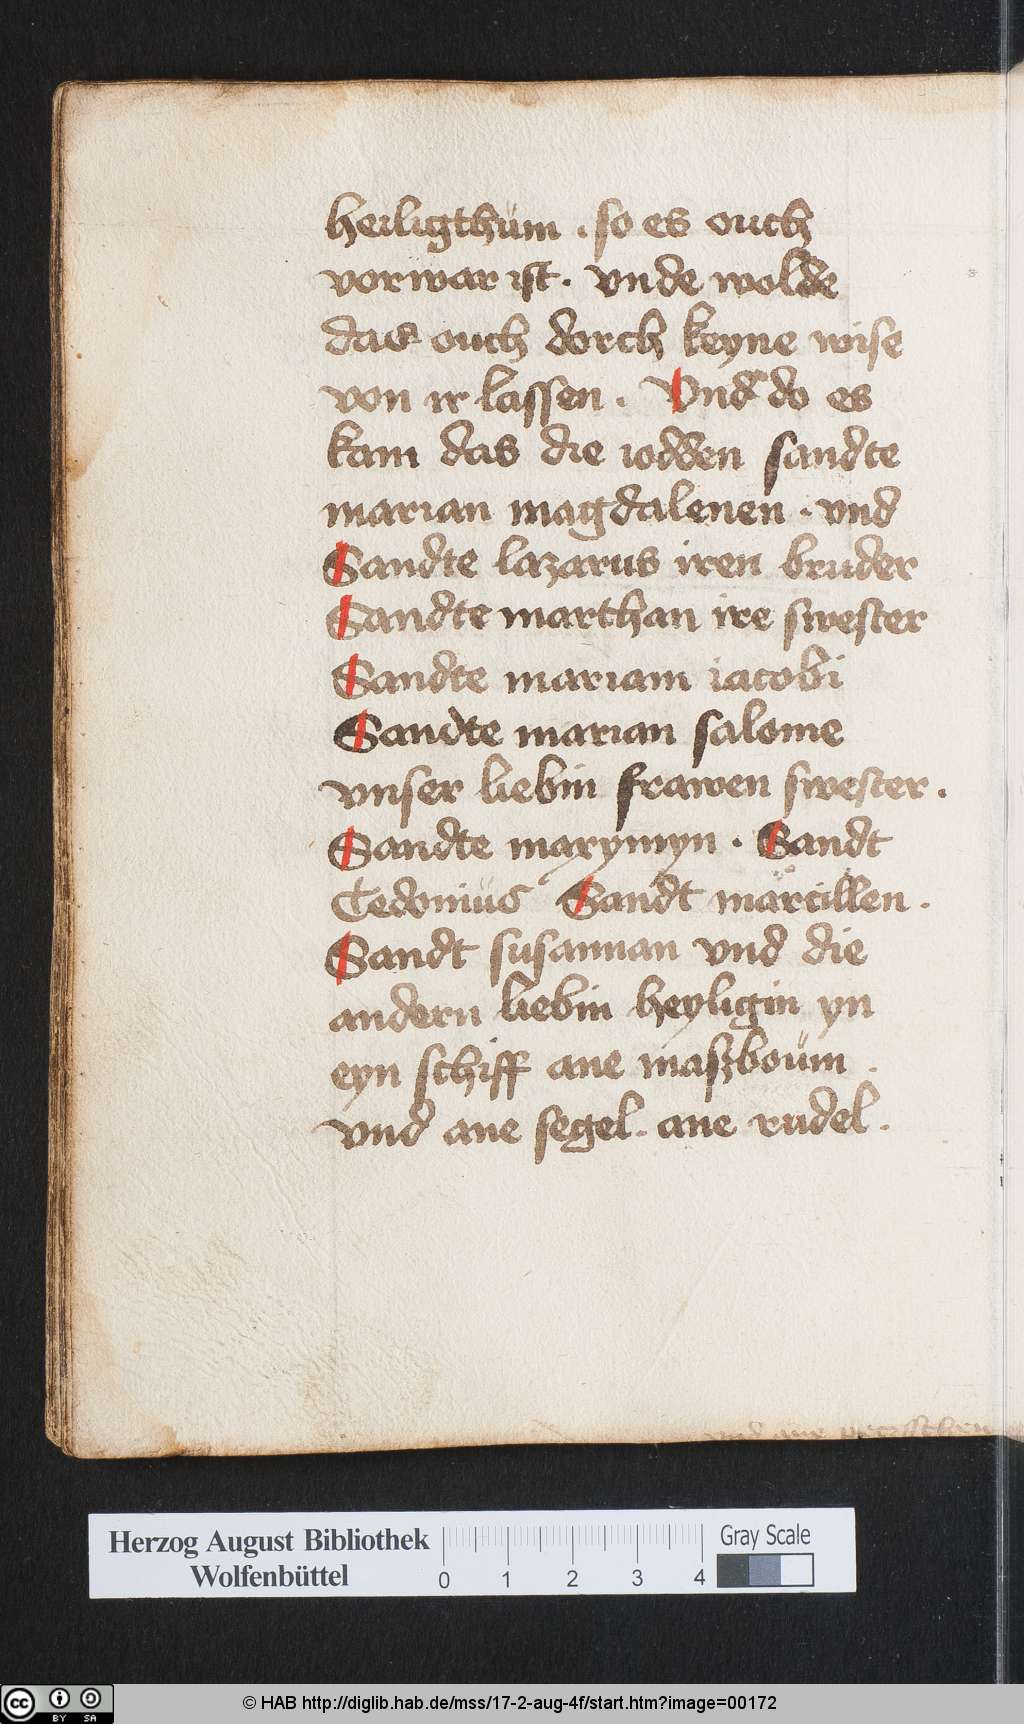 heiligthum . so es ouch
vorwar ist . vnde wolde
das ouch dorch keyne wise
von ir lassen . Vnd do es
kam das die iodden sandte
marian magdalenen . vnd
Sandte lazarus iren bruder
Sandte marthan ire swester
Sandte mariam iacobi
Sandte marian salome
vnser liebin frawen swester .
Sandte marymyn . Sandt
Cedonius Sandt märcillen .
Sandt susannan vnd die
andern liebin heyligin yn
eyn schiff ane maszboum .
vnd ane segel . ane rudel .
vnd ane
Herzog August Bibliothek
Wolfenbüttel
0 1 2 3 4
Gray Scale
cc BY SA
© HAB http://diglib.hab.de/mss/17-2-aug-4f/start.htm?image=00172